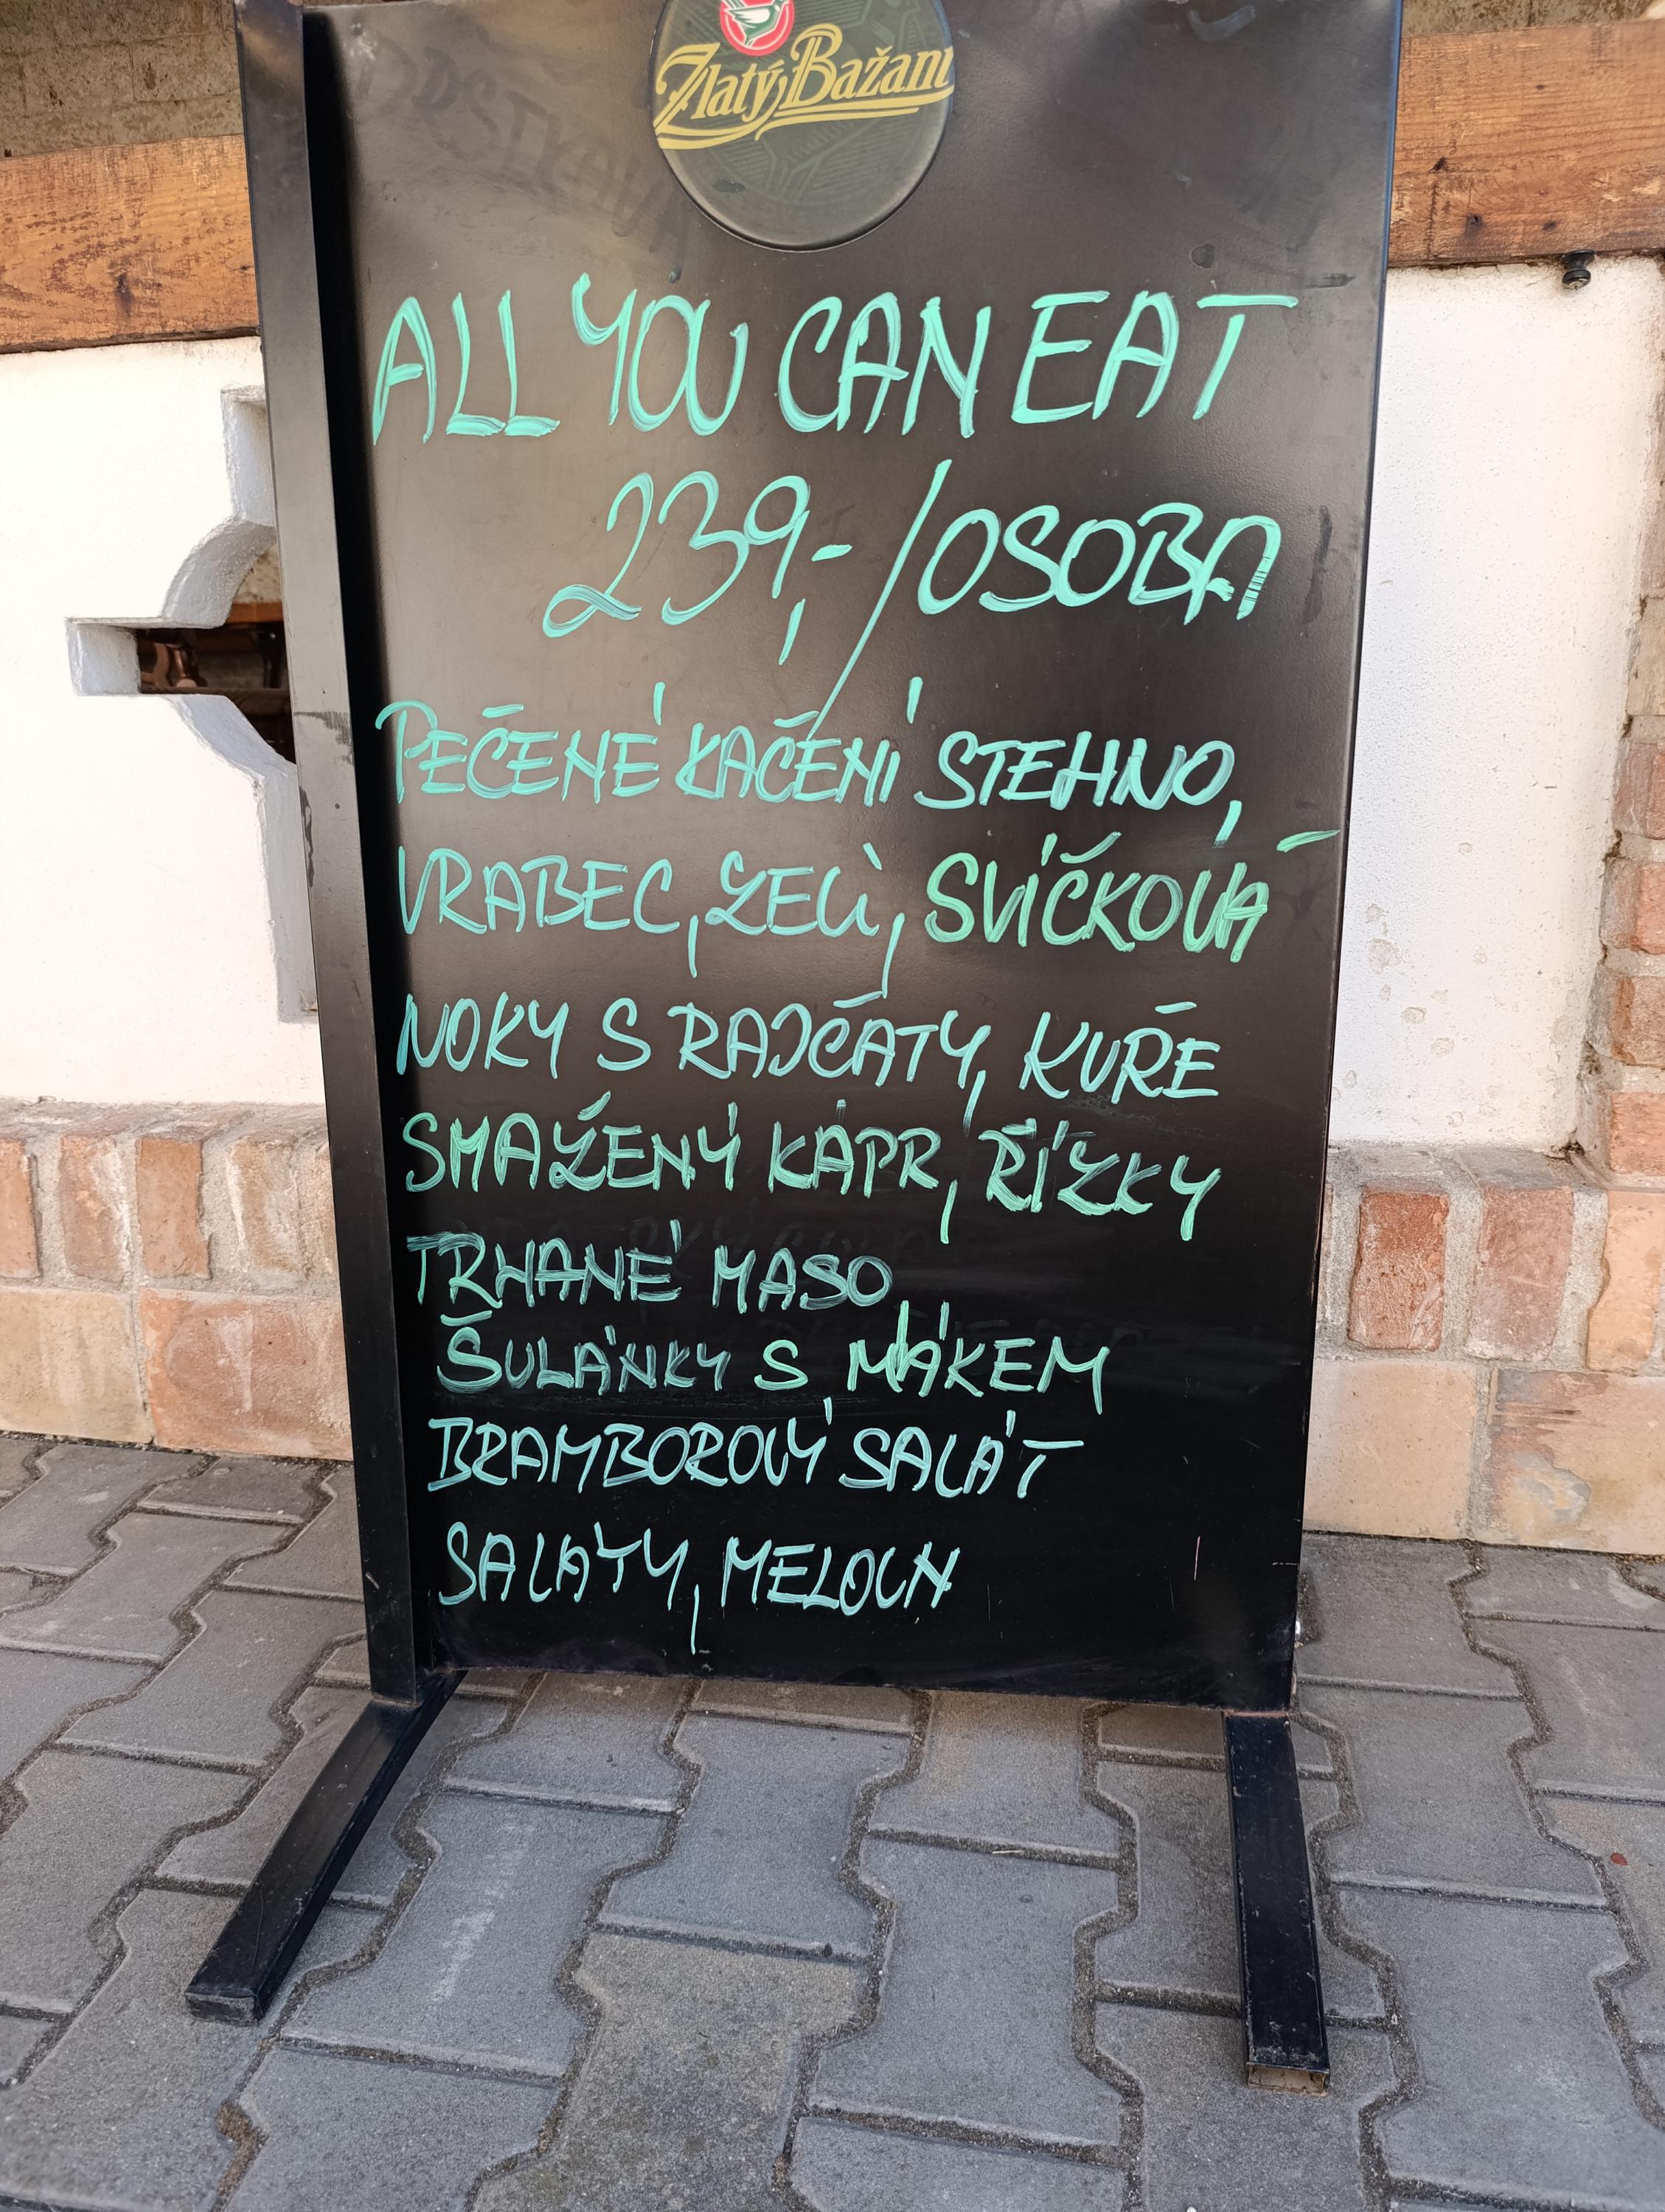 Zlatý Bažant
ALL YOU CAN EAT
239,-/OSOBA
PEČENÉ KAČENÍ STEHNO,
VRABEC, ZELÍ, SVÍČKOVÁ
NOKY S RAJČATY, KUŘE
SMAŽENÝ KAPR, ŘÍZKY
TRHANÉ MASO,
ŠULÁNKY S MÁKEM
BRAMBOROVÝ SALÁT
SALÁTY, MELOUN